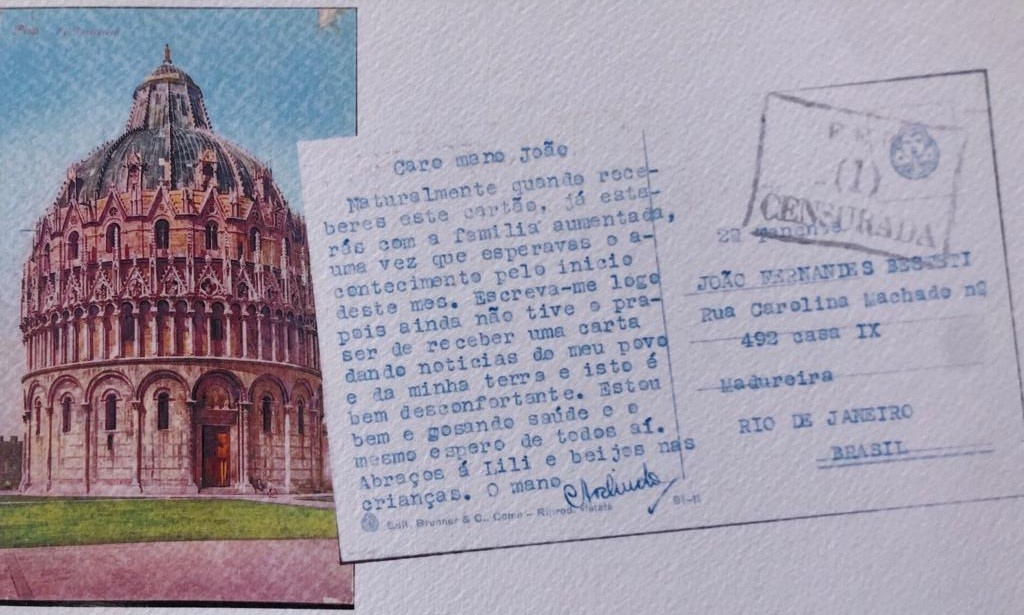 Pisa
Caro mano João
Naturalmente quando rece-
beres este cartão, já esta-
rás com a familia aumentada,
uma vez que esperavas o a-
contecimento pelo inicio
deste mes. Escreva-me logo
pois ainda não tive o pra-
ser de receber uma carta
dando noticias do meu povo
e da minha terra e isto é
bem desconfortante. Estou
bem e gosando saúde e o
mesmo espero de todos aí.
Abraços á Lili e beijos nas
crianças. O mano
Edit. Brunner & C., Como - Riprod. Vietata
(I)
CENSURADA
JOÃO FERNANDES
Rua Carolina Machado nº
492 casa IX
Madureira
RIO DE JANEIRO
BRASIL